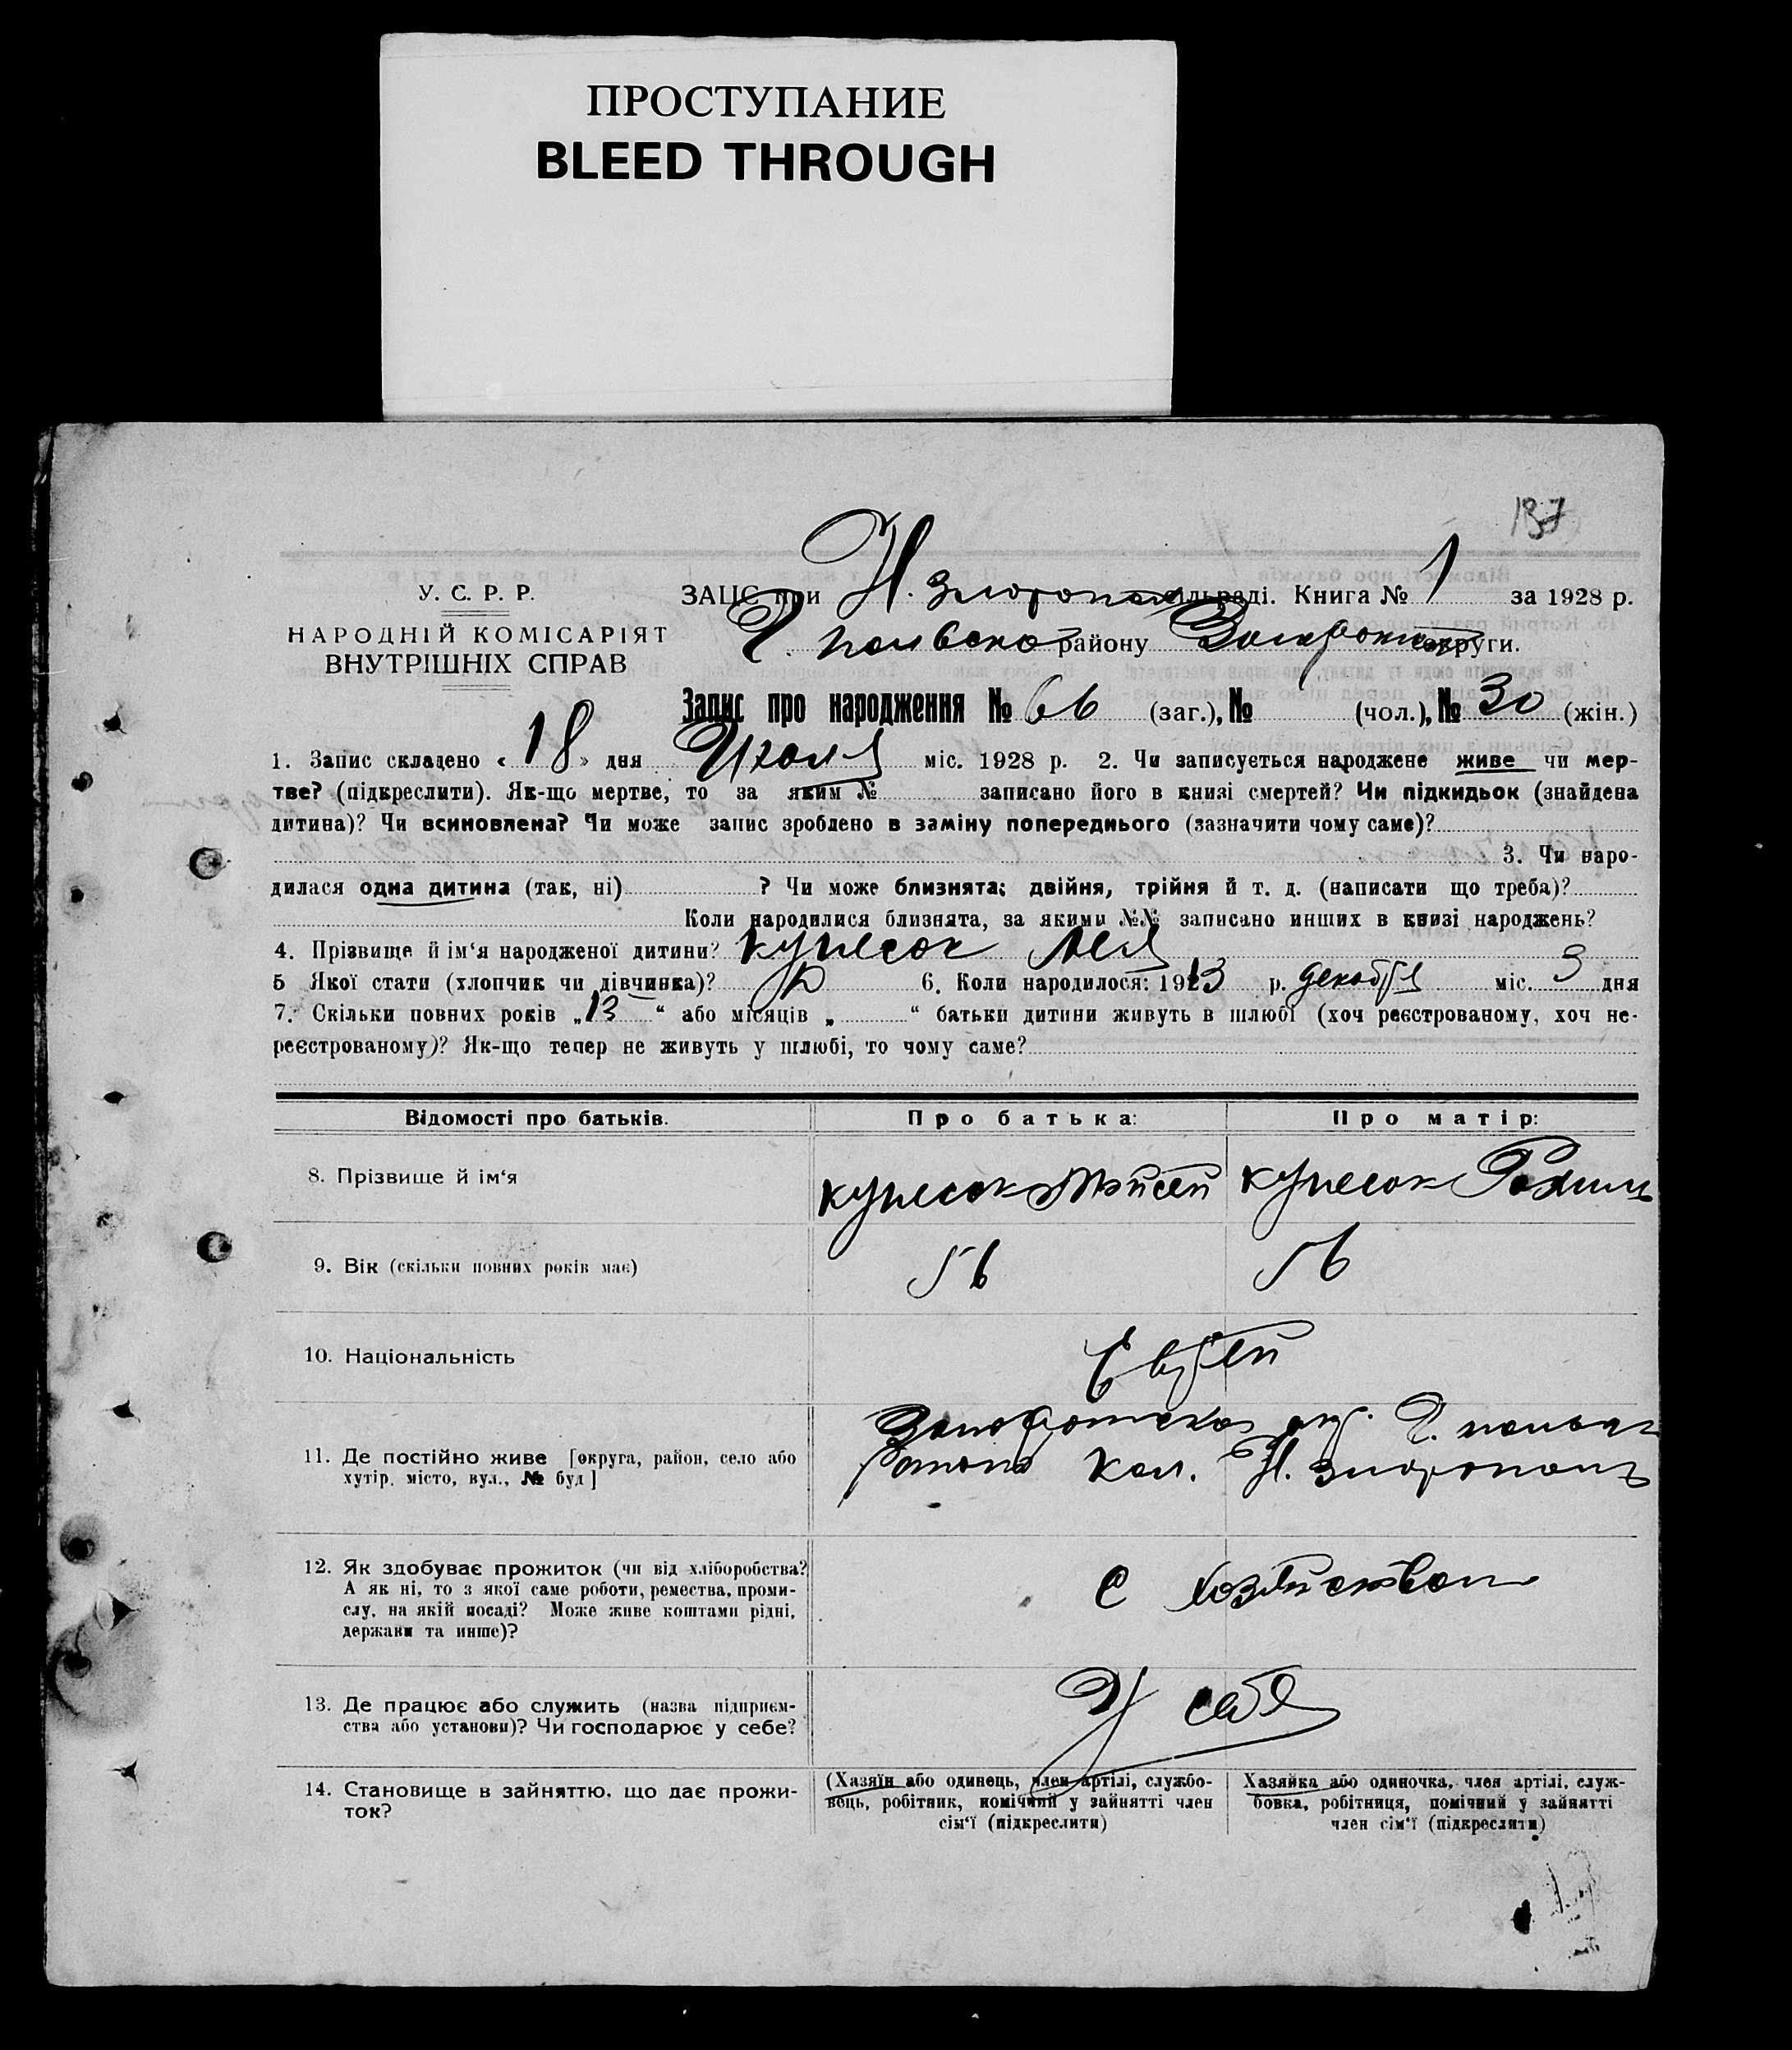 ПРОСТУПАНИЕ
BLEED THROUGH
137
У. С. Р. Р.
НАРОДНІЙ КОМІСАРІЯТ
ВНУТРІШНІХ СПРАВ
ЗАЦС при Н. Златополь сільраді. Книга № 1 за 1928 р.
району округи.
Запис про народження № 66 (заг.), № (чол.), № 30 (жін.)
1. Запис складено « 18 » дня Июля міс. 1928 р. 2. Чи записується народжене живе чи мер-
тве? (підкреслити). Як-що мертве, то за яким № записано його в книзі смертей? Чи підкидьок (знайдена
дитина)? Чи всиновлена? Чи може запис зроблено в заміну попереднього (зазначити чому саме)?
3. Чи наро-
дилася одна дитина (так, ні) ? Чи може близнята: двійня, трійня й т. д. (написати що треба)?
Коли народилися близнята, за якими №№ записано инших в книзі народжень?
4. Прізвище й ім‘я народженої дитини?
5 Якої стати (хлопчик чи дівчинка)? 6. Коли народилося: 1913 р. декабря міс. 3 дня
7. Скільки повних років „ 13 “ або місяців „ “ батьки дитини живуть в шлюбі (хоч реєстрованому, хоч не-
реєстрованому)? Як-що тепер не живуть у шлюбі, то чому саме?
Відомості про батьків. Про батька: Про матір:
8. Прізвище й ім‘я
9. Вік (скільки повних років має) 56 56
10. Національність Еврей
11. Де постійно живе [округа, район, село або
хутір, місто, вул., № буд]
района кол. Н. Златополь
12. Як здобуває прожиток (чи від хліборобства?
А як ні, то з якої саме роботи, ремества, проми-
слу, на якій посаді? Може живе коштами рідні,
держави та инше)?
С хозяйством
13. Де працює або служить (назва підприєм-
ства або установи)? Чи господарює у себе?
У себя
14. Становище в зайняттю, що дає прожи-
ток?
(Хазяїн або одинець, член артілі, службо-
вець, робітник, помічний у зайнятті член
сім‘ї (підкреслити)
Хазяйка або одиночка, член артілі, служ-
бовка, робітниця, помічний у зайнятті
член сім‘ї (підкреслити)